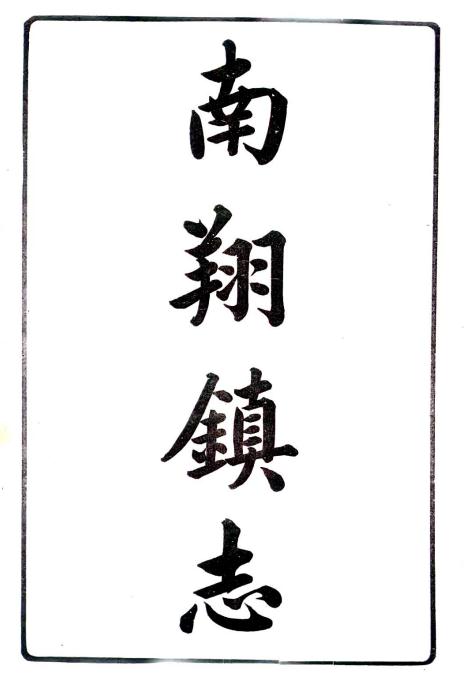 南翔鎮志